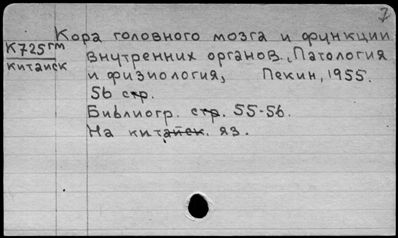 7
Кора головного мозга и функции
К725гм
внутренних органов. Патология
китайск
и физиология, Пекин, 1955.
56 стр.
Библиогр. стр. 55-56.
На китайск. яз.